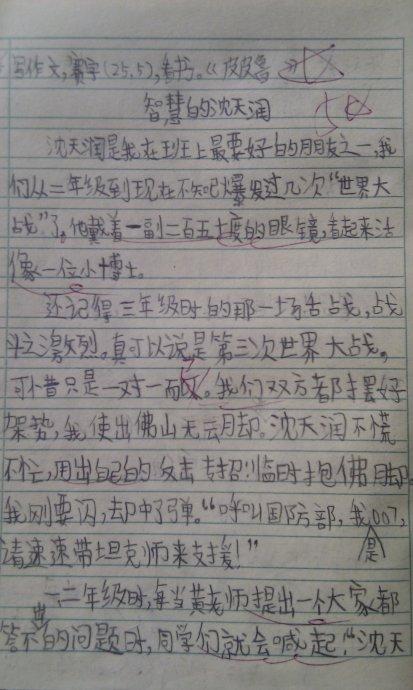 写作文,赛字(25.5),看书。《皮皮鲁
智慧的沈天润
沈天润是我在班上最要好的朋友之一,我
们从二年级到现在不知爆发过几次“世界大
战”了。他戴着一副二百五十度的眼镜,看起来活
像一位小博士。
还记得三年级时的那一场舌战,战
斗之激烈。真可以说是第三次世界大战。
可惜只是一对一而已。我们双方都摆好
架势,我使出佛山无影脚。沈天润不慌
不忙,用出自己的反击专招!临时抱佛脚。
我刚要闪,却中了弹。“呼叫国防部,我是007,
请速速带坦克师来支援!”
一、二年级时,每当黄老师提出一个大家都
答不出的问题时,同学们就会喊起:“沈天